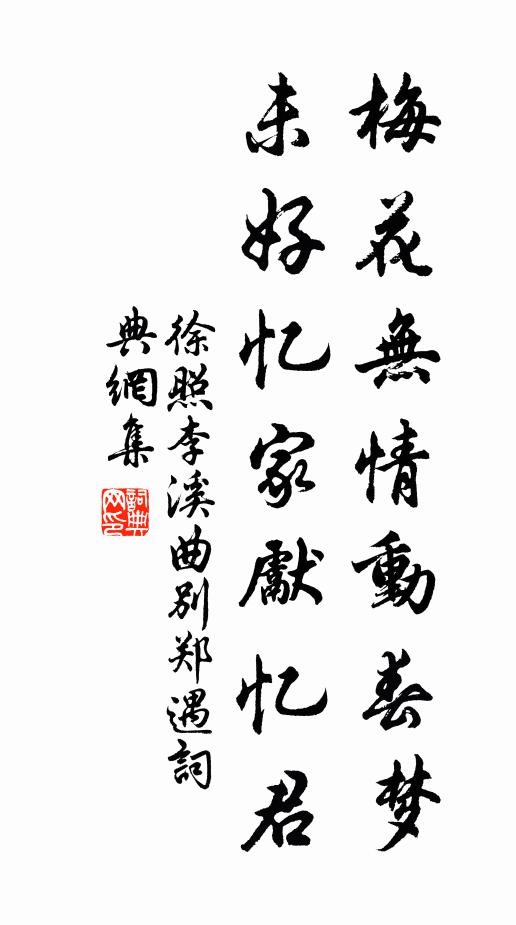 梅花無情動春梦
未好忆家獻忆君
徐照李溪曲别郑遇詞
典網集
詞典網印